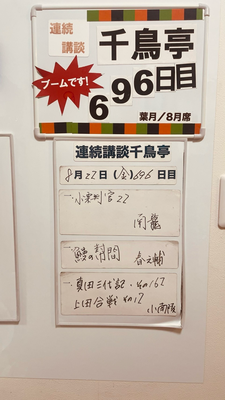 連続
講談
千鳥亭
ブームです!
696日目
葉月/8月席
連続講談千鳥亭
8月22日(金)696日目
一、小栗判官22
南龍
一、鰻の幇間
春之輔
一、真田三代記・その162
上田合戦その12
小南陵